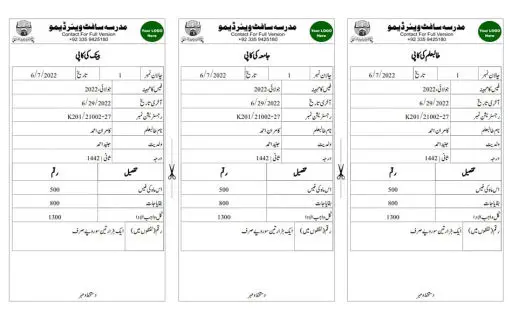 مدرسہ سافٹ ویئر ڈیمو
Contact For Full Version
+92 335 9425180
Your LOGO
Here
طالبعلم کی کاپی
چالان نمبر 1 تاریخ 6/7/2022
فیس کا مہینہ جولائی-2022
آخری تاریخ 6/29/2022
رجسٹریشن نمبر K201/21002-27
نام طالبعلم کامران احمد
ولدیت جنید احمد
درجہ ثانی 1442
تفصیل رقم
اس ماہ کی فیس 500
بقایاجات 800
کل واجب الادا 1300
رقم (لفظوں میں) ایک ہزار تین سو روپے صرف
دستخط و مہر
مدرسہ سافٹ ویئر ڈیمو
Contact For Full Version
+92 335 9425180
Your LOGO
Here
جامعہ کی کاپی
چالان نمبر 1 تاریخ 6/7/2022
فیس کا مہینہ جولائی-2022
آخری تاریخ 6/29/2022
رجسٹریشن نمبر K201/21002-27
نام طالبعلم کامران احمد
ولدیت جنید احمد
درجہ ثانی 1442
تفصیل رقم
اس ماہ کی فیس 500
بقایاجات 800
کل واجب الادا 1300
رقم (لفظوں میں) ایک ہزار تین سو روپے صرف
دستخط و مہر
مدرسہ سافٹ ویئر ڈیمو
Contact For Full Version
+92 335 9425180
Your LOGO
Here
بینک کی کاپی
چالان نمبر 1 تاریخ 6/7/2022
فیس کا مہینہ جولائی-2022
آخری تاریخ 6/29/2022
رجسٹریشن نمبر K201/21002-27
نام طالبعلم کامران احمد
ولدیت جنید احمد
درجہ ثانی 1442
تفصیل رقم
اس ماہ کی فیس 500
بقایاجات 800
کل واجب الادا 1300
رقم (لفظوں میں) ایک ہزار تین سو روپے صرف
دستخط و مہر